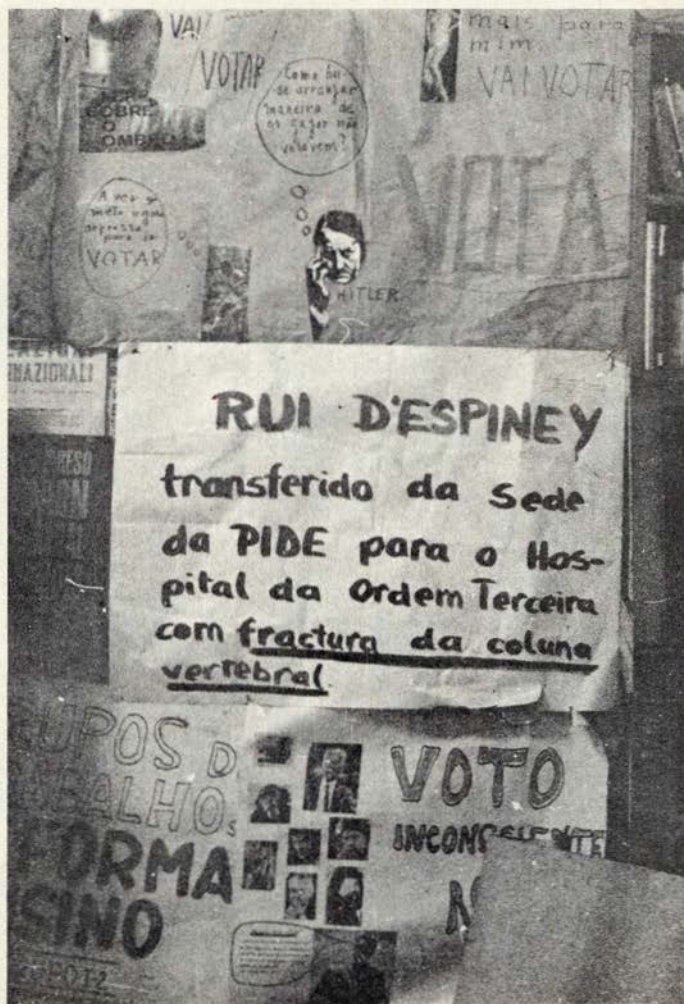 VAI
VOTAR
SOBRE
O
OMBRO
Como hei
de arranjar
maneira de
os gajos não
votarem?
mais para
mim.
VAI VOTAR
A ver se
meto
depressa
para ir
VOTAR
VOTA
HITLER
NAZIONALI
RUI D'ESPINEY
transferido da sede
da PIDE para o Hos-
pital da Ordem Terceira
com fractura da coluna
vertebral.
UPOS D
BALHO
FORMA
SINO
VOTO
INCONSCIENTE